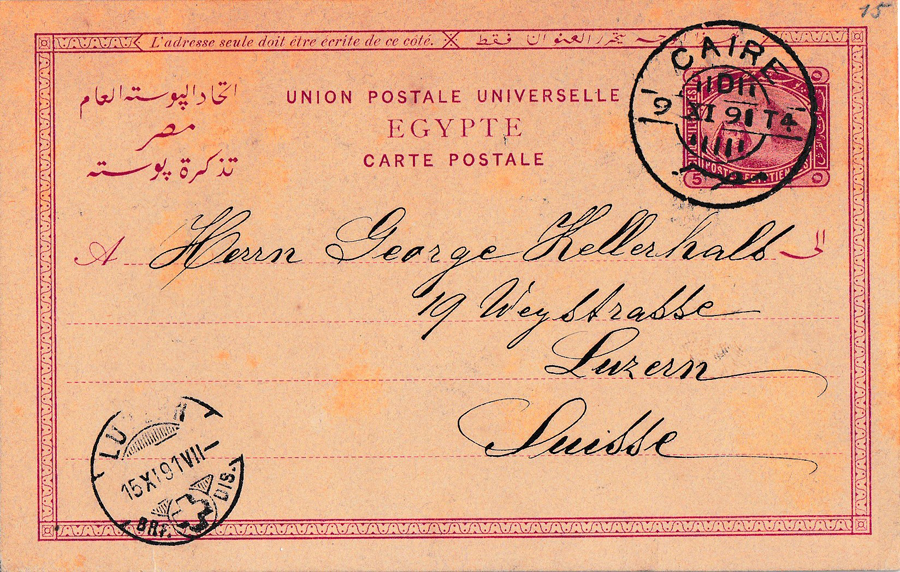 15
L'adresse seule doit être écrite de ce côté.
اتحاد البوسته العام
مصر
تذكرة بوسته
UNION POSTALE UNIVERSELLE
EGYPTE
CARTE POSTALE
CAIRE
XI 91 T4
5
A Herrn George Kellerhals الى
19 Weystrasse
Luzern
Suisse
15 XI 91 VII
BRF. DIS.